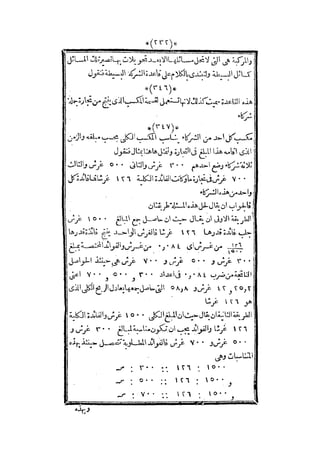 *(٢٣٢)*
والمركبة هى التى لا تحل مسائلها الا بعدة تحويلات بها تصير تلك المسائل
كمسائل البسيطة ولنبتدى بالكلام على قاعدة الشركة البسيطة فنقول
*(٣٤٦)*
هذه القاعدة سميت كذلك لانها تستعمل لقسمة المكسب الذى ينتج من تجارة جملة
شركاء
*(٣٤٧)*
مكسب كل احد من الشركاء يناسب المكسب الكلى بحسب مبلغه والزمن
الذى اقامه هذا المبلغ فى التجارة ولنمثل هنا بمثال فنقول
ثلاثة شركاء وضع احدهم ٣٠٠ غرش والثانى ٥٠٠ غرش والثالث
٧٠٠ غرش فى تجارة وكانت الفائدة الكلية ١٢٦ غرشا فما فائدة كل
واحد من هذه الشركاء
فالجواب ان يقال لحل هذه المسئلة طريقتان
الطريقة الاولى ان يقال حيث ان حاصل جمع المبالغ ١٥٠٠ غرش
جلب فائدة قدرها ١٢٦ غرشا فالغرش الواحد ينتج فائدة قدرها
١٢٦/١٥٠٠ من غرش اى ٠,٠٨٤ من غرش والفوائد المختصة بمبلغ
٣٠٠ غرش و ٥٠٠ غرش و ٧٠٠ غرش هى حينئذ الحواصل
الناتجة من ضرب ٠,٠٨٤ فى اعداد ٣٠٠ و ٥٠٠ و ٧٠٠ اعنى
٢٥,٢ و ٤٢ غرش و ٥٨,٨ التى حاصل جمعها يعادل الربح الكلى الذى
هو ١٢٦ غرشا
الطريقة الثانية ان يقال حيث ان المبلغ الكلى ١٥٠٠ غرش والفائدة الكلية
١٢٦ غرشا والفوائد يجب ان تكون مناسبة للمبالغ ٣٠٠ غرش و
٥٠٠ غرش و ٧٠٠ غرش فالفوائد المطلوبة تتحصل حينئذ بهذه
المتناسبات وهى
١٥٠٠ : ١٢٦ :: ٣٠٠ : سـ
و ١٥٠٠ : ١٢٦ :: ٥٠٠ : سـ
و ١٥٠٠ : ١٢٦ :: ٧٠٠ : سـ
وبهذه